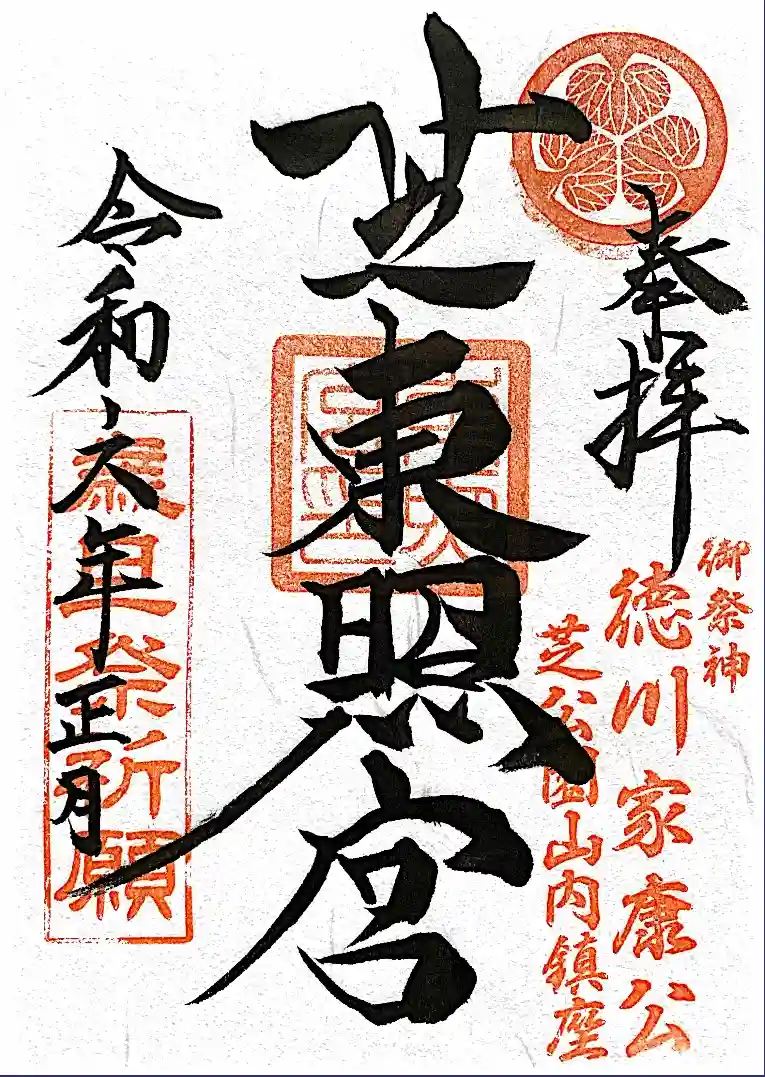 奉拝
御祭神
徳川家康公
芝公園山内鎮座
芝東照宮
令和六年正月
歳旦祭祈願